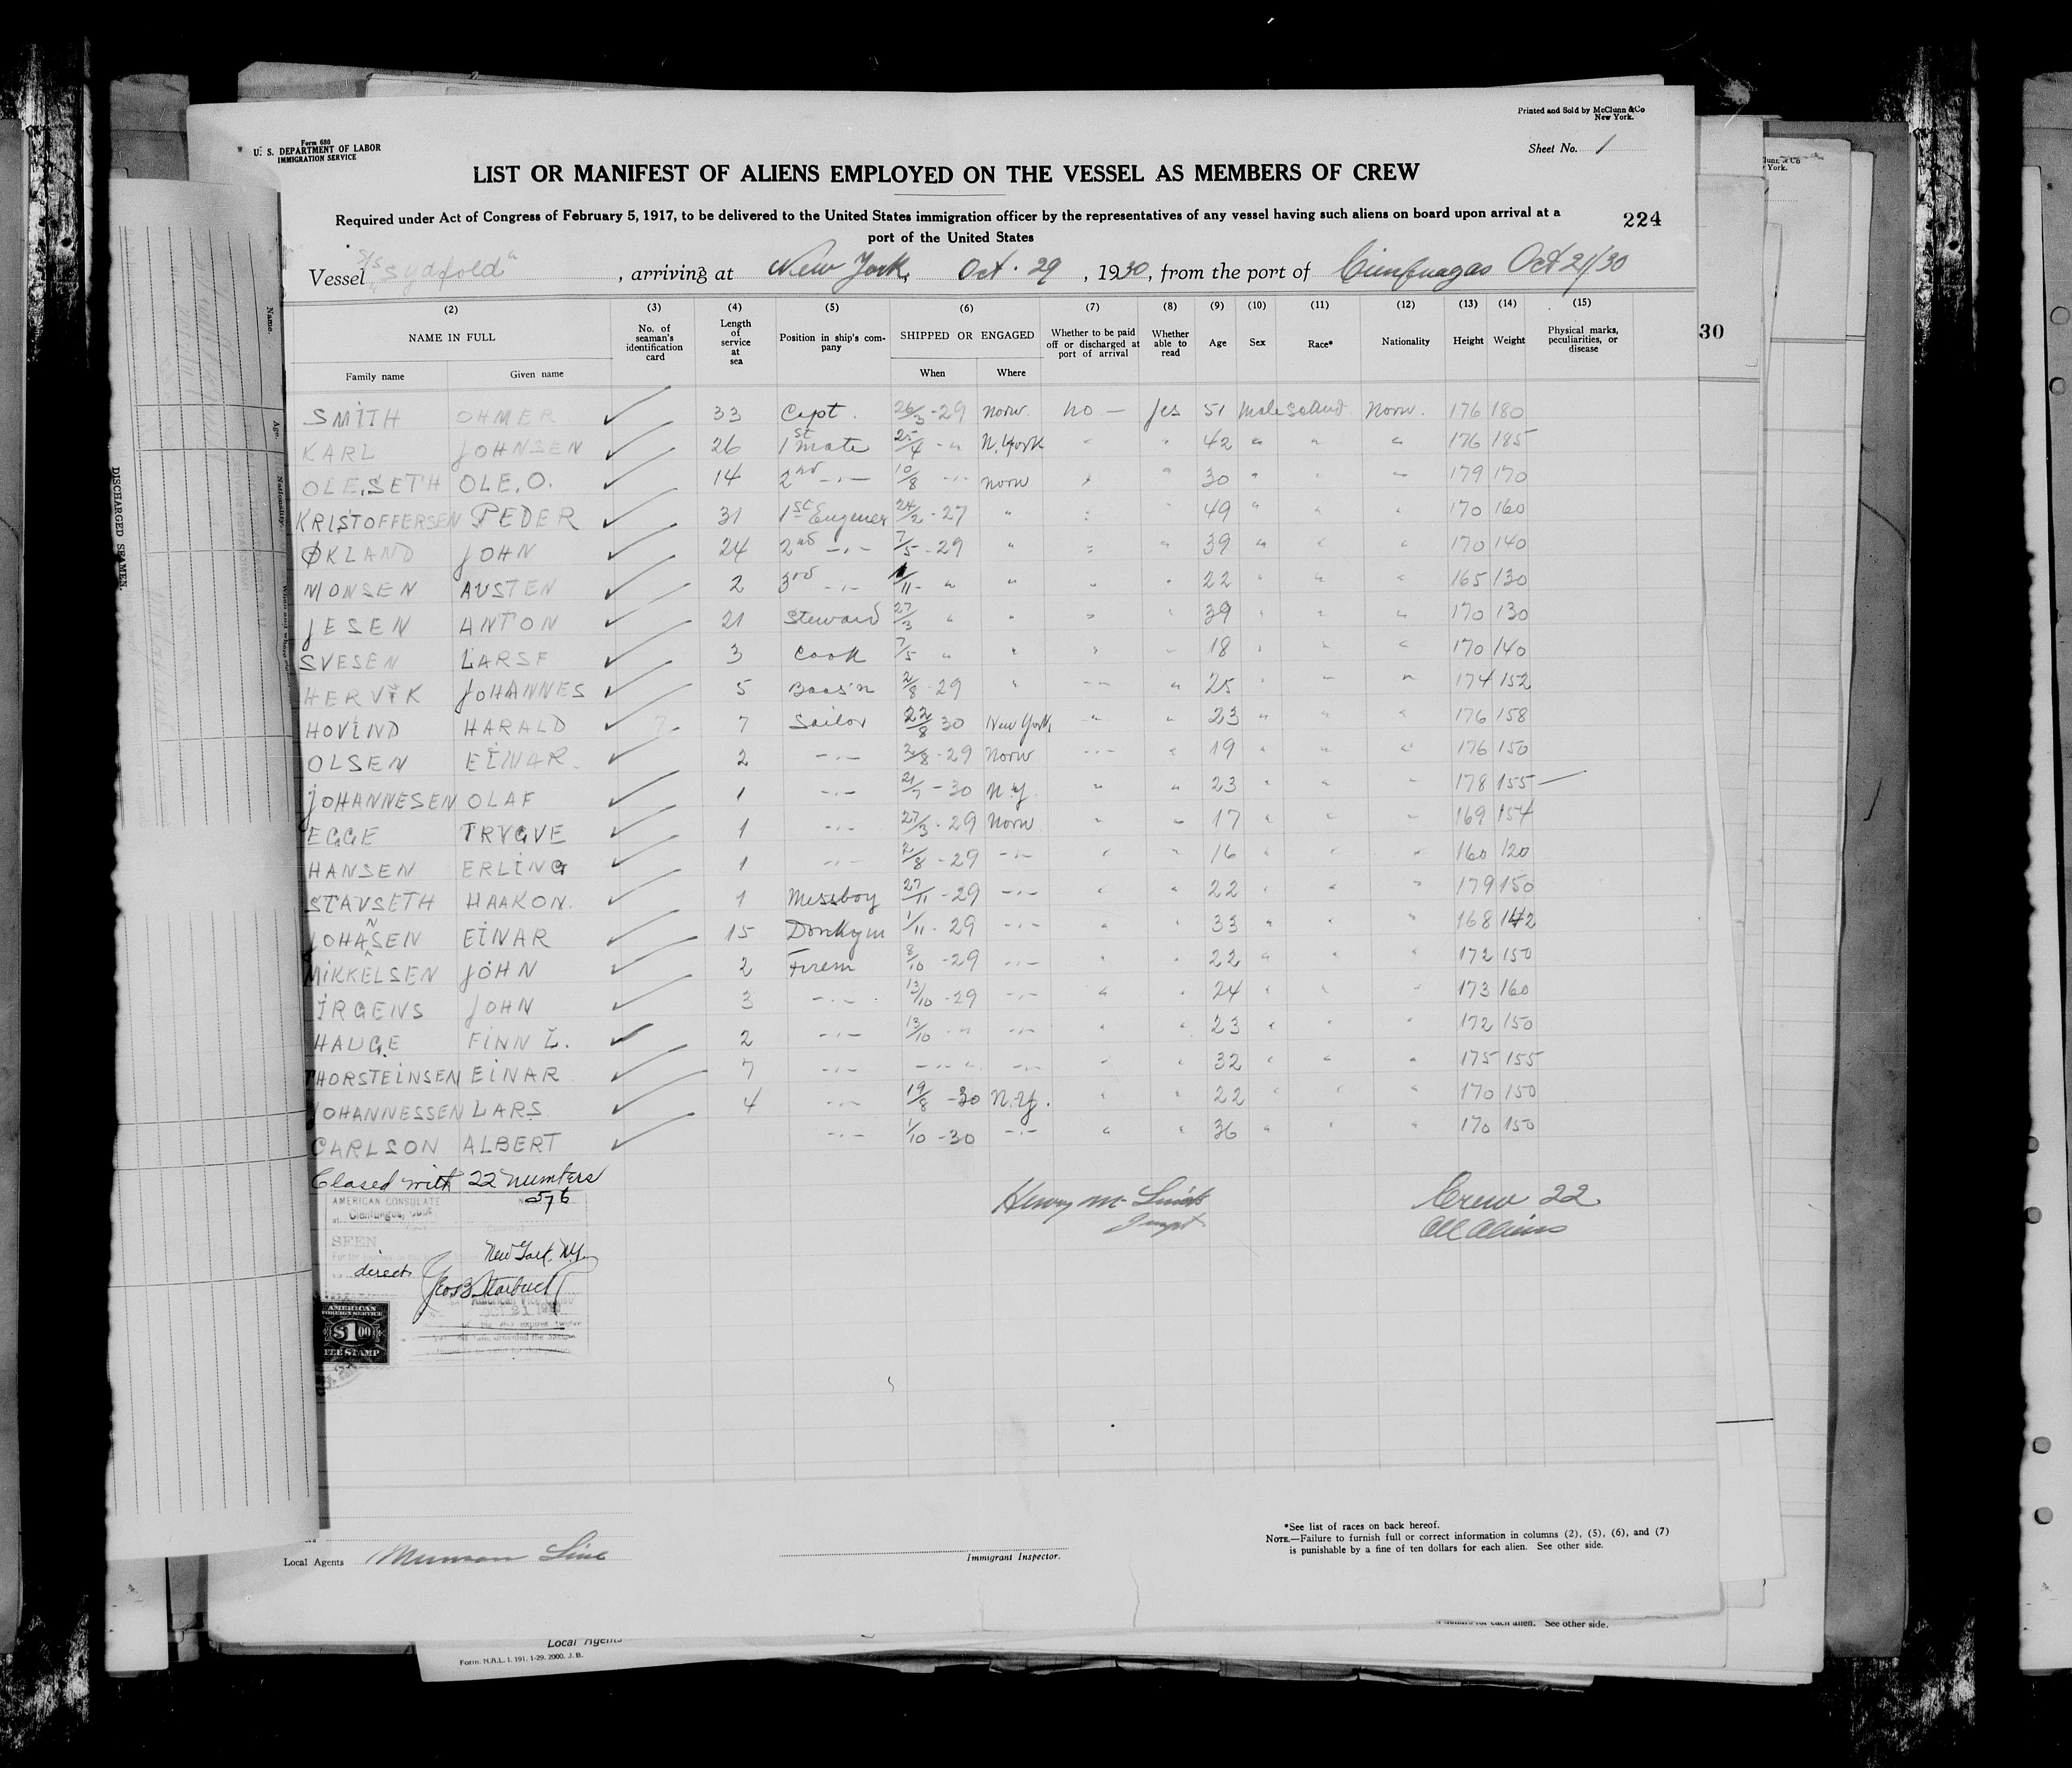 Printed and Sold by McClunn & Co
New York.
Form 680
U. S. DEPARTMENT OF LABOR
IMMIGRATION SERVICE
Sheet No. 1
LIST OR MANIFEST OF ALIENS EMPLOYED ON THE VESSEL AS MEMBERS OF CREW
Required under Act of Congress of February 5, 1917, to be delivered to the United States immigration officer by the representatives of any vessel having such aliens on board upon arrival at a
port of the United States
224
Vessel S/S "Sydfold", arriving at New York, Oct. 29, 1930, from the port of Cienfuegos Oct 21/30
(2) (3) (4) (5) (6) (7) (8) (9) (10) (11) (12) (13) (14) (15)
NAME IN FULL No. of seaman's identification card Length of service at sea Position in ship's company SHIPPED OR ENGAGED Whether to be paid off or discharged at port of arrival Whether able to read Age Sex Race* Nationality Height Weight Physical marks, peculiarities, or disease
Family name Given name When Where
SMITH OHMER ✓ 33 Capt. 26/3 -29 Norw. no — yes 51 male Scand. Norw. 176 180
KARL JOHNSEN ✓ 26 1st mate 25/4 - " N. York " " 42 " " " 176 185
OLE.SETH OLE.O. ✓ 14 2nd -"- 10/8 -"- Norw " " 30 " " " 179 170
KRISTOFFERSEN PEDER ✓ 31 1st Engener 24/2 -27 " " " 49 " " " 170 160
ØKLAND JOHN ✓ 24 2nd -"- 7/5 -29 " " " 39 " " " 170 140
MONSEN AUSTEN ✓ 2 3rd -"- 1/11 - " " " " 22 " " " 165 130
JESEN ANTON ✓ 21 Steward 27/3 " " " " 39 " " " 170 130
SVESEN LARSF ✓ 3 Cook 7/5 " " " " 18 " " " 170 140
HERVIK JOHANNES ✓ 5 Boas'n 2/8 -29 " " " 25 " " " 174 152
HOVIND HARALD ✓ 7 7 Sailor 22/8 30 New York " " 23 " " " 176 158
OLSEN EINAR. ✓ 2 -"- 2/8 -29 Norw " " 19 " " " 176 150
JOHANNESEN OLAF ✓ 1 -"- 21/7 -30 N.Y. " " 23 " " " 178 155 —
EGGE TRYGVE ✓ 1 -"- 27/3 -29 Norw " " 17 " " " 169 154
HANSEN ERLING ✓ 1 -"- 2/8 -29 -"- " " 16 " " " 160 120
STAVSETH HAAKON. ✓ 1 Messboy 27/11 -29 -"- " " 22 " " " 179 150
JOHANSEN EINAR ✓ 15 Donkym 1/11 -29 -"- " " 33 " " " 168 142
MIKKELSEN JOHN ✓ 2 Firem 8/10 -29 -"- " " 22 " " " 172 150
IRGENS JOHN ✓ 3 -"- 13/10 -29 -"- " " 24 " " " 173 160
HAUGE FINN L. ✓ 2 -"- 13/10 - " -"- " " 23 " " " 172 150
THORSTEINSEN EINAR ✓ 7 -"- -"- -"- " " 32 " " " 175 155
JOHANNESSEN LARS ✓ 4 -"- 19/8 -30 N.Y. " " 22 " " " 170 150
CARLSON ALBERT ✓ -"- 1/10 -30 -"- " " 36 " " " 170 150
Closed with 22 numbers
576
AMERICAN CONSULATE
at Cienfuegos, Cuba
SEEN
New York. N.Y.
direct
Geo B. Starbuck
American Vice Consul
AMERICAN
FOREIGN SERVICE
$1 00
FEE STAMP
Crew 22
All Aliens
Local Agents Munson Line
Immigrant Inspector.
*See list of races on back hereof.
NOTE.—Failure to furnish full or correct information in columns (2), (5), (6), and (7)
is punishable by a fine of ten dollars for each alien. See other side.
30
DISCHARGED SEAMEN.
Name.
Age.
Nationality.
Local Agents
Form. N.A.L. I. 191. 1-29. 2000. J. B.
dollars for each alien. See other side.